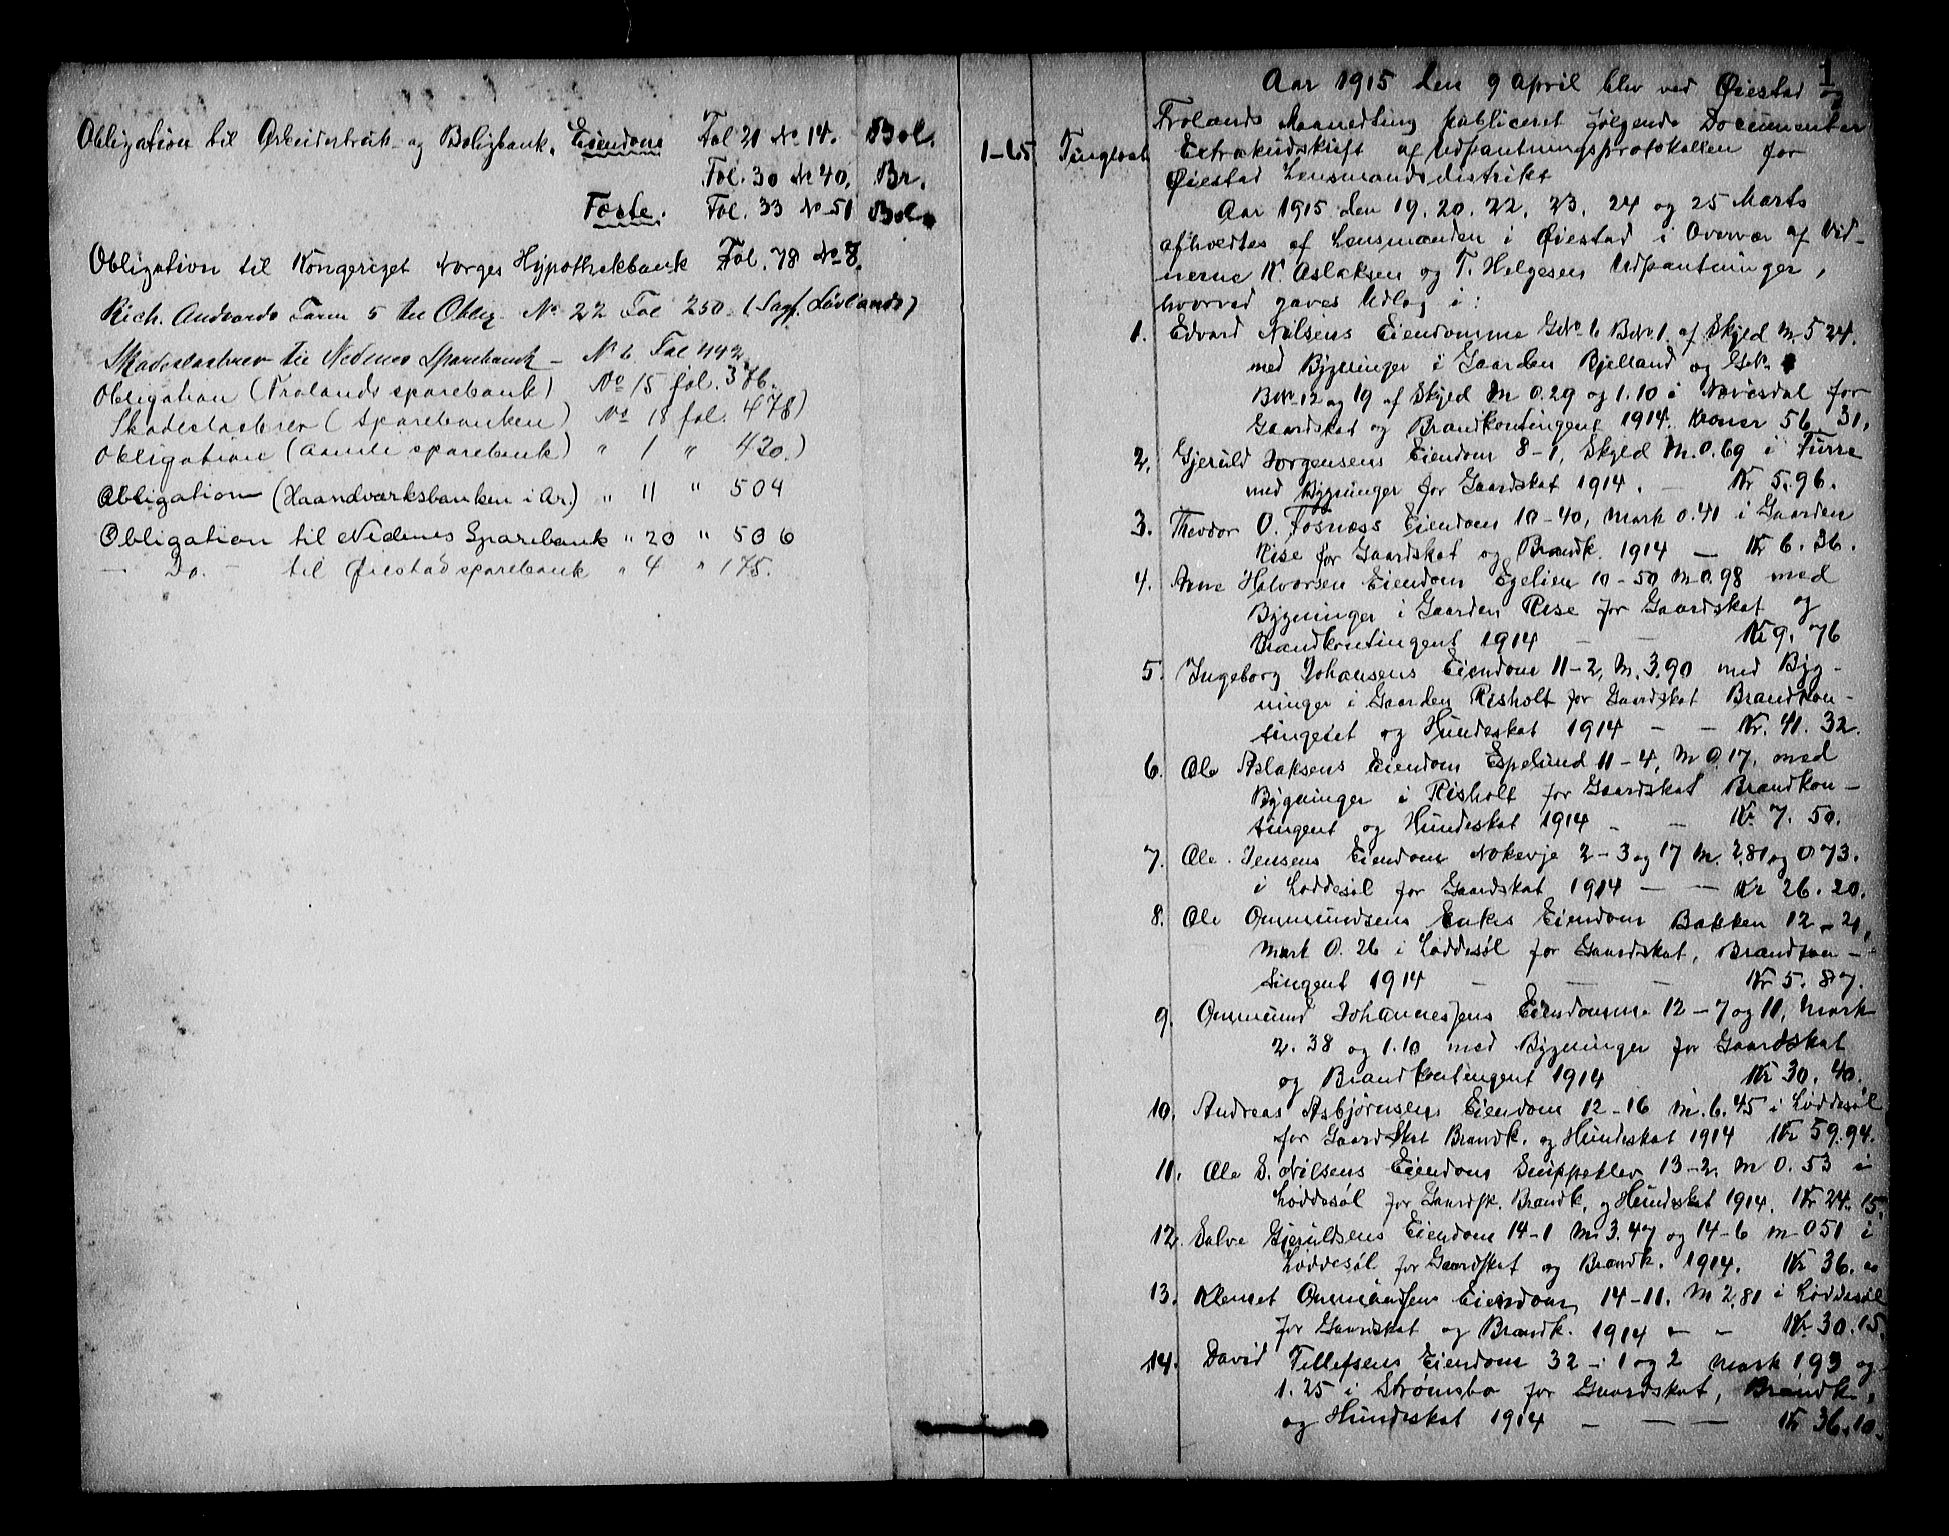 Obligation til Arbeiderbruk- og Boligbank. Eiendom Fol 21 No 14. Bol.
Fol. 30 No 40. Br.
Feste. Fol. 33 No 51 Bol.
Obligation til Kongeriget Norges Hypothekbank Fol. 78 No 8.
Rich. Andvords Form 5 til Oblig. No 22 Fol 250. (Sagf. Løvlands)
Skadesløsbrev til Nedenes Sparebank – No 6 Fol 442
Obligation (Frolands sparebank) No 15 fol. 376.
Skadesløsbrev (sparebanken) No 18 fol. 478)
Obligation (Aamli sparebank) " 1 " 420.)
Obligation (Haandværksbanken i Ar.) " 11 " 504
Obligation til Nedenes Sparebank " 20 " 506
— Do. — til Øiestad sparebank " 4 " 175.
1
Aar 1915 den 9 April blev ved Øiestad og
Frolands Maanedting publiceret følgende Documenter
1-65 Tinglæst Extraktudskrift af Udpantningsprotokollen for
Øiestad Lensmandsdistrikt
Aar 1915 den 19. 20. 22. 23. 24 og 25 Marts
afholdtes af Lensmanden i Øiestad i Overvær af Vid-
nerne K. Aslaksen og T. Helgesen Udpantninger,
hvorved gaves Udlæg i:
1. Edvard Nilsens Eiendomme GNo 6 BNo 1. af Skyld M 5 24.
med Bygninger i Gaarden Bjelland og GNo
BNo 12 og 19 af Skyld M 0.29 og 1.10 i Nævesdal for
Gaardskat og Brandkontingent 1914. Kroner 56. 31.
2. Gjeruld Jørgensens Eiendom 8-1, Skyld M. 0.69 i Furre
med Bygninger for Gaardskat 1914. — Kr 5.96.
3. Theodor O. Fosnæss Eiendom 10-40, Mark 0.41 i Gaarden
Rise for Gaardskat og Brandk. 1914 — Kr 6. 36.
4. Arne Halvorsen Eiendom Egelien 10-50 M 0.98 med
Bygninger i Gaarden Rise for Gaardskat og
Brandkontingent 1914 — — Kr 9. 76
5. Ingeborg Johansens Eiendom 11-2, M. 3.90 med Byg-
ninger i Gaarden Risholt for Gaardskat Brandkon-
tingetet og Hundeskat 1914 — — Kr. 41. 32.
6. Ole Aslaksens Eiendom Espelund 11-4, M 0.17. med
Bygninger i Risholt for Gaardskat Brandkon-
tingent og Hundeskat 1914 — — Kr. 7. 50.
7. Ole Jensens Eiendom 2-3 og 17 M. 2.81 og 0 73.
i Løddesøl for Gaardskat 1914 — — Kr 26. 20.
8. Ole Ommundsens Enkes Eiendom Bakken 12-21,
Mark 0. 26 i Løddesøl for Gaardskat, Brandkon-
tingent 1914 — — — Kr 5. 87.
9. Ommund Johannesens Eiendomme 12-7 og 11, Mark
2. 38 og 1.10 med Bygninger for Gaardskat
og Brandkontingent 1914 Kr 30. 40.
10. Andreas Asbjørnsens Eiendom 12-16 M. 6. 45 i Løddesøl
for Gaardskat Brandk. og Hundeskat 1914 Kr 59.94.
11. Ole S. Nilsens Eiendom 13-2. M 0. 53 i
Løddesøl for Gaardsk. Brandk. og Hundeskat 1914. Kr 24. 15.
12. Salve Gjeruldsens Eiendom 14-1 M. 3.47 og 14-6 M 0 51 i
Løddesøl for Gaardskat og Brandk. 1914. Kr 36. 00
13. Klemet Ommundsens Eiendom 14-11. M 2.81 i Løddesøl
for Gaardskat og Brandk. 1914 — — Kr 30.15.
14. David Tellefsens Eiendom 32-1 og 2 Mark 1 93 og
1. 25 i Strømsbo for Gaardskat, Brandk.,
og Hundeskat 1914 — — — Kr 36.10.